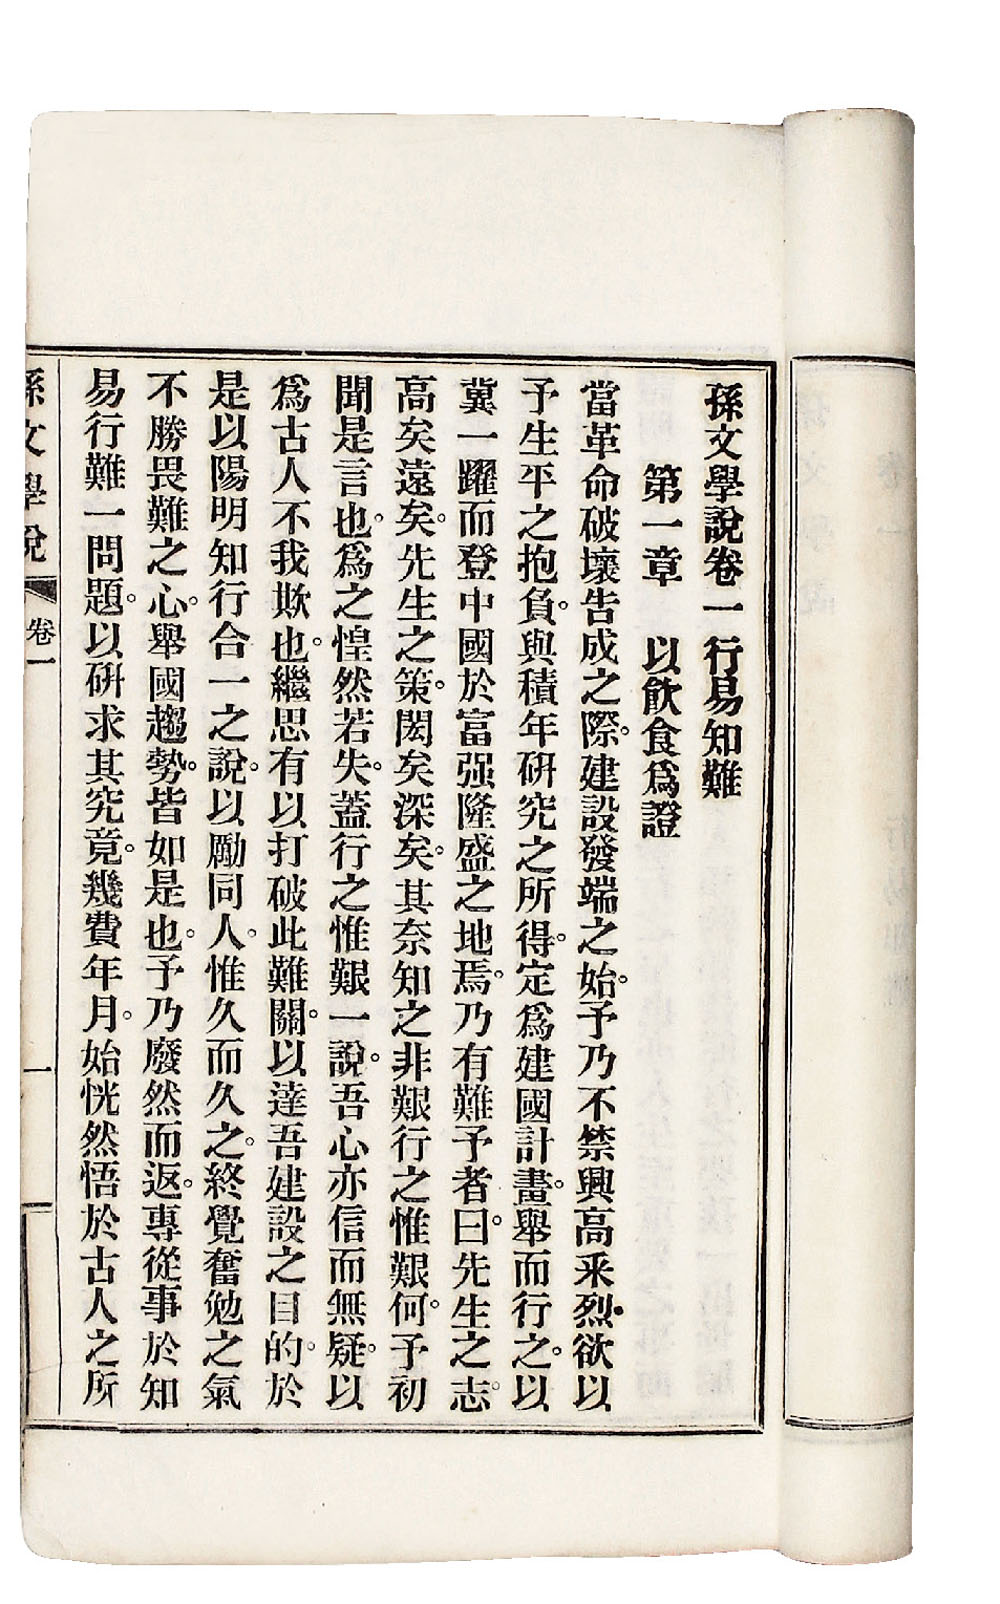 孫文學說卷一 行易知難
第一章 以飲食爲證
當革命破壞告成之際。建設發端之始。予乃不禁興高釆烈。欲以
予生平之抱負。與積年研究之所得。定爲建國計畫。舉而行之。以
冀一躍而登中國於富强隆盛之地焉。乃有難予者曰。先生之志
高矣遠矣。先生之策。閎矣深矣。其奈知之非艱行之惟艱何。予初
聞是言也。爲之惶然若失。蓋行之惟艱一說。吾心亦信而無疑。以
爲古人不我欺也。繼思有以打破此難關。以達吾建設之目的。於
是以陽明知行合一之說。以勵同人。惟久而久之。終覺奮勉之氣
不勝畏難之心。舉國趨勢。皆如是也。予乃廢然而返。專從事於知
易行難一問題。以硏求其究竟。幾費年月。始恍然悟於古人之所
孫文學說 卷一 一